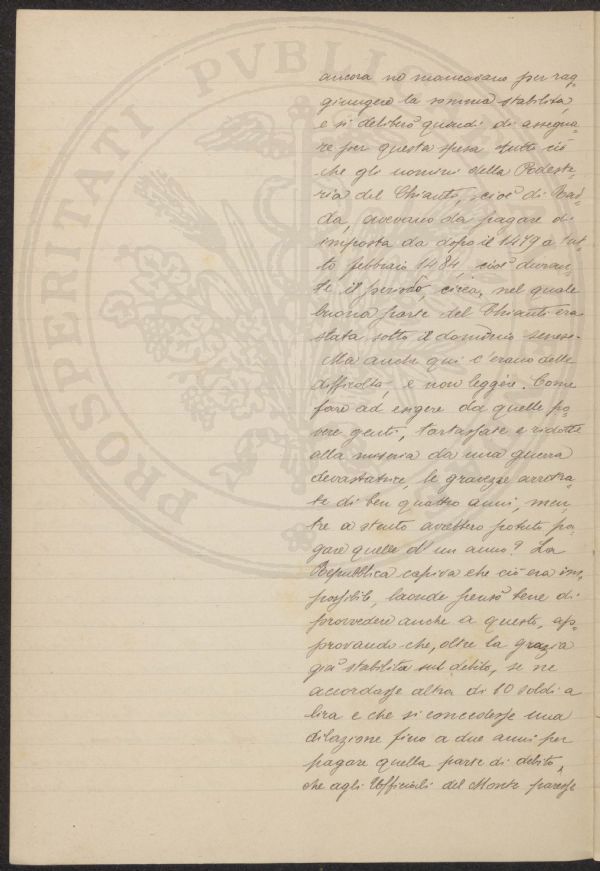 PROSPERITATI PVBLICAE
ancora no mancavano per rag-
giungere la somma stabilita,
e si deliberò quindi di assegna-
re per questa spesa tutto ciò
che gli uomini della Podeste-
ria del Chianti, cioè di Rad-
da, avevano da pagare di
imposta da dopo il 1479 a tut-
to febbraio 1484, cioè duran-
te il periodo, circa, nel quale
buona parte del Chianti era
stata sotto il dominio senese.
Ma anche qui c'erano delle
difficoltà, e non leggère. Come
fare ad esigere da quelle po-
vere genti, tartassate e ridotte
alla miseria da una guerra
devastatrice, le gravezze arretra-
te di ben quattro anni, men-
tre a stento avrebbero potuto pa-
gare quelle d'un anno? La
Repubblica capiva che ciò era im-
possibile, laonde pensò bene di
provvedere anche a questo, ap-
provando che, oltre la grazia
già stabilita sul debito, se ne
accordasse altra di 10 soldi a
lira e che si concedesse una
dilazione fino a due anni per
pagare quella parte di debito,
che agli Ufficiali del Monte paresse